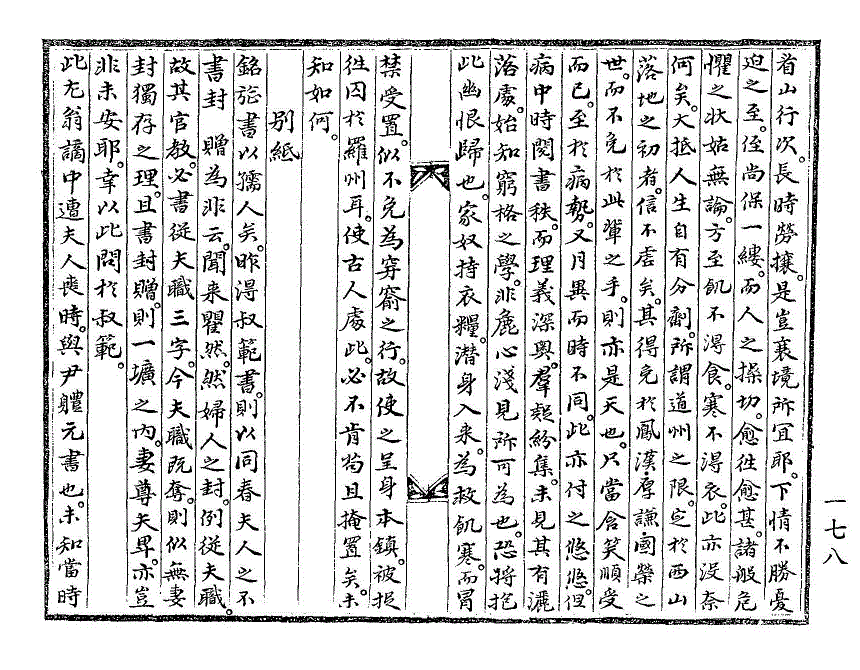 省山行次。長時勞攘。是豈衰境所宜耶。下情不勝憂
迫之至。侄尚保一縷。而人之操切。愈往愈甚。諸般危
懼之狀姑無論。方至飢不得食。寒不得衣。此亦沒奈
何矣。大抵人生自有分劑。所謂道州之限。定於西山
落地之初者。信不虛矣。其得免於鳳漢,厚謙,國榮之
世。而不免於此輩之手。則亦是天也。只當含笑順受
而已。至於病勢。又月異而時不同。此亦付之悠悠。但
病中時閱書秩。而理義深奧。羣疑紛集。未見其有灑
落處。始知窮格之學。非麁心淺見所可爲也。恐將抱
此幽恨歸也。家奴持衣糧。潛身入來。爲救飢寒。而冒
禁受置。似不免爲穿窬之行。故使之呈身本鎭。被捉
徃囚於羅州耳。使古人處此。必不肯苟且掩置矣。未
知如何。
別紙
銘旌書以孺人矣。昨得叔範書。則以同春夫人之不
書封 贈爲非云。聞來瞿然。然婦人之封。例從夫職。
故其官敎。必書從夫職三字。今夫職旣奪。則似無妻
封獨存之理。且書封贈。則一壙之內。妻尊夫卑。亦豈
非未安耶。幸以此問於叔範。
此尤翁謫中遭夫人喪時。與尹軆元書也。未知當時
一七八